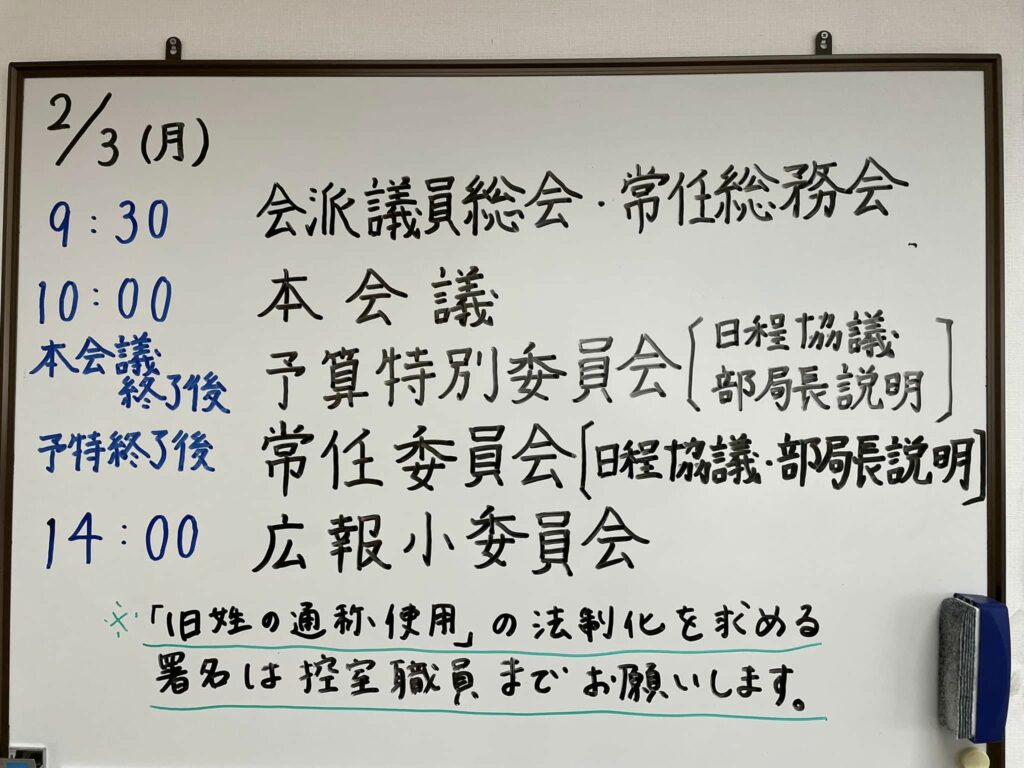 2/3(月)
9:30 会派議員総会・常任総務会
10:00 本会議
本会議終了後 予算特別委員会[日程協議 部局長説明]
予特終了後 常任委員会[日程協議・部局長説明]
14:00 広報小委員会
※「旧姓の通称使用」の法制化を求める
署名は控室職員までお願いします。